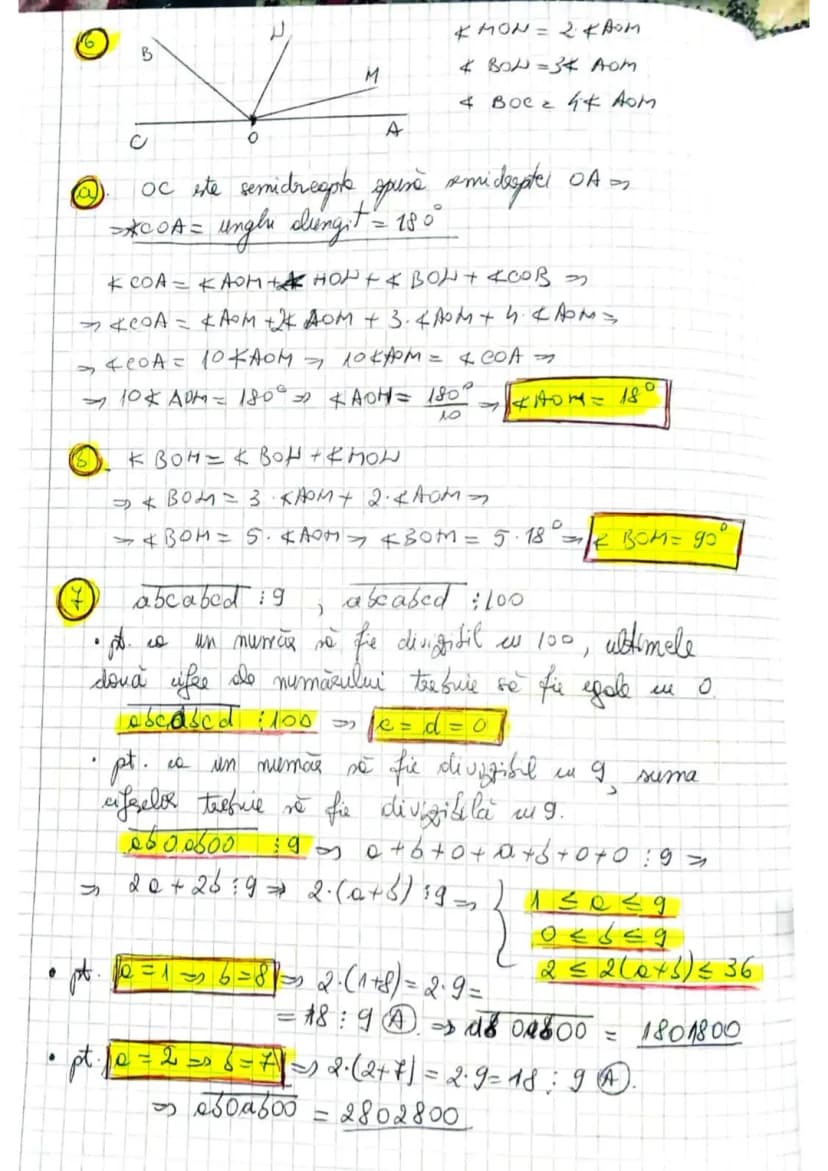 6
B N M C O A
∢ MON = 2·∢ AOM
∢ BON = 3∢ AOM
∢ BOC = 4∢ AOM
a). OC este semidreapta opusă semidreptei OA ⇒
⇒ ∢COA = unghi alungit = 180°
∢ COA = ∢ AOM + ∢ MON + ∢ BON + ∢COB ⇒
⇒ ∢COA = ∢ AOM + 2∢ AOM + 3·∢AOM + 4·∢ AOM ⇒
⇒ ∢COA = 10∢AOM ⇒ 10∢AOM = ∢ COA ⇒
⇒ 10∢ AOM = 180° ⇒ ∢ AOM = 180°/10 ⇒ ∢AOM = 18°
b). ∢ BOM = ∢ BON + ∢MON
⇒ ∢ BOM = 3·∢AOM + 2·∢AOM ⇒
⇒ ∢BOM = 5·∢AOM ⇒ ∢BOM = 5·18° ⇒ ∢ BOM = 90°
7 abcabcd ⋮ 9 , abcabcd ⋮ 100
• pt. ca un număr să fie divizibil cu 100, ultimele
două cifre ale numărului trebuie să fie egale cu 0.
abcabcd ⋮ 100 ⇒ c = d = 0
• pt. ca un număr să fie divizibil cu 9, suma
cifrelor trebuie să fie divizibilă cu 9.
ab0ab00 ⋮ 9 ⇒ a+b+0+a+b+0+0 ⋮ 9 ⇒
⇒ 2a + 2b ⋮ 9 ⇒ 2·(a+b) ⋮ 9 ⇒ { 1 ≤ a ≤ 9
0 ≤ b ≤ 9
2 ≤ 2(a+b) ≤ 36
• pt. a = 1 ⇒ b = 8 ⇒ 2·(1+8) = 2·9 =
= 18 ⋮ 9 (A). ⇒ ab0ab00 = 1801800
• pt. a = 2 ⇒ b = 7 ⇒ 2·(2+7) = 2·9 = 18 ⋮ 9 (A).
⇒ ab0ab00 = 2802800